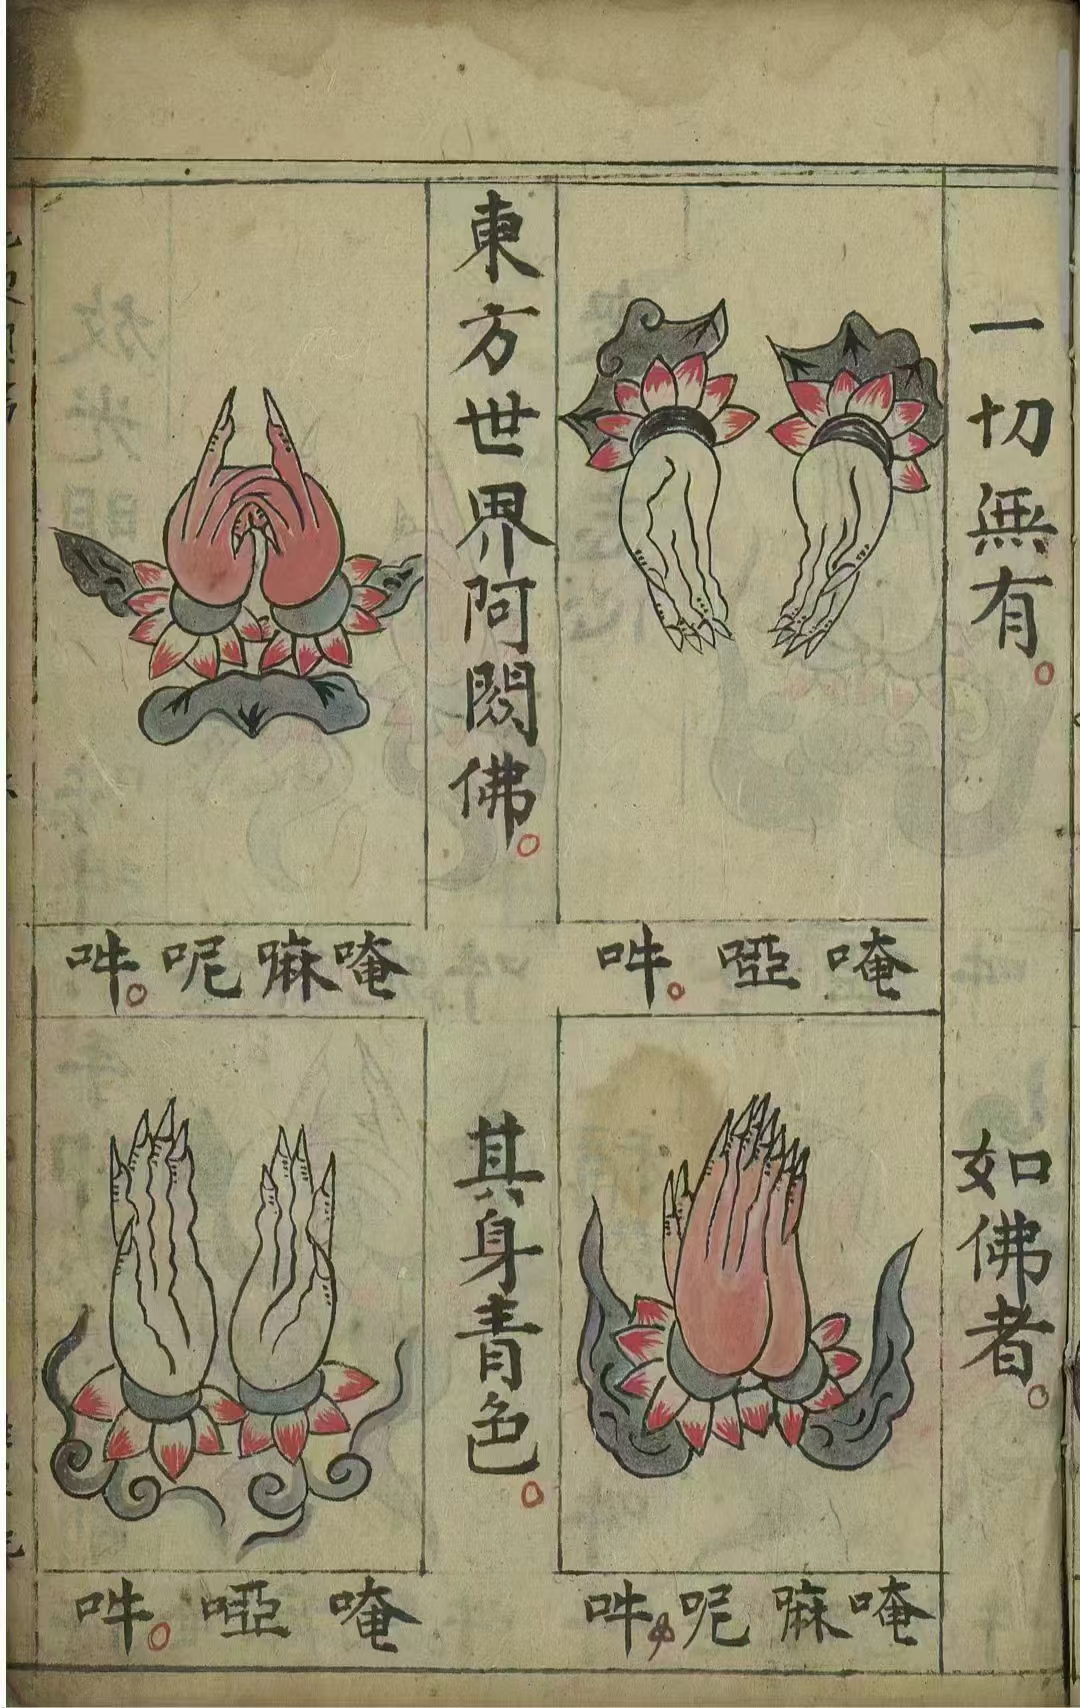 一切無有。
如佛者。
唵啞吽。
唵嘛呢吽。
東方世界阿閦佛。
其身青色。
唵嘛呢吽。
唵啞吽。